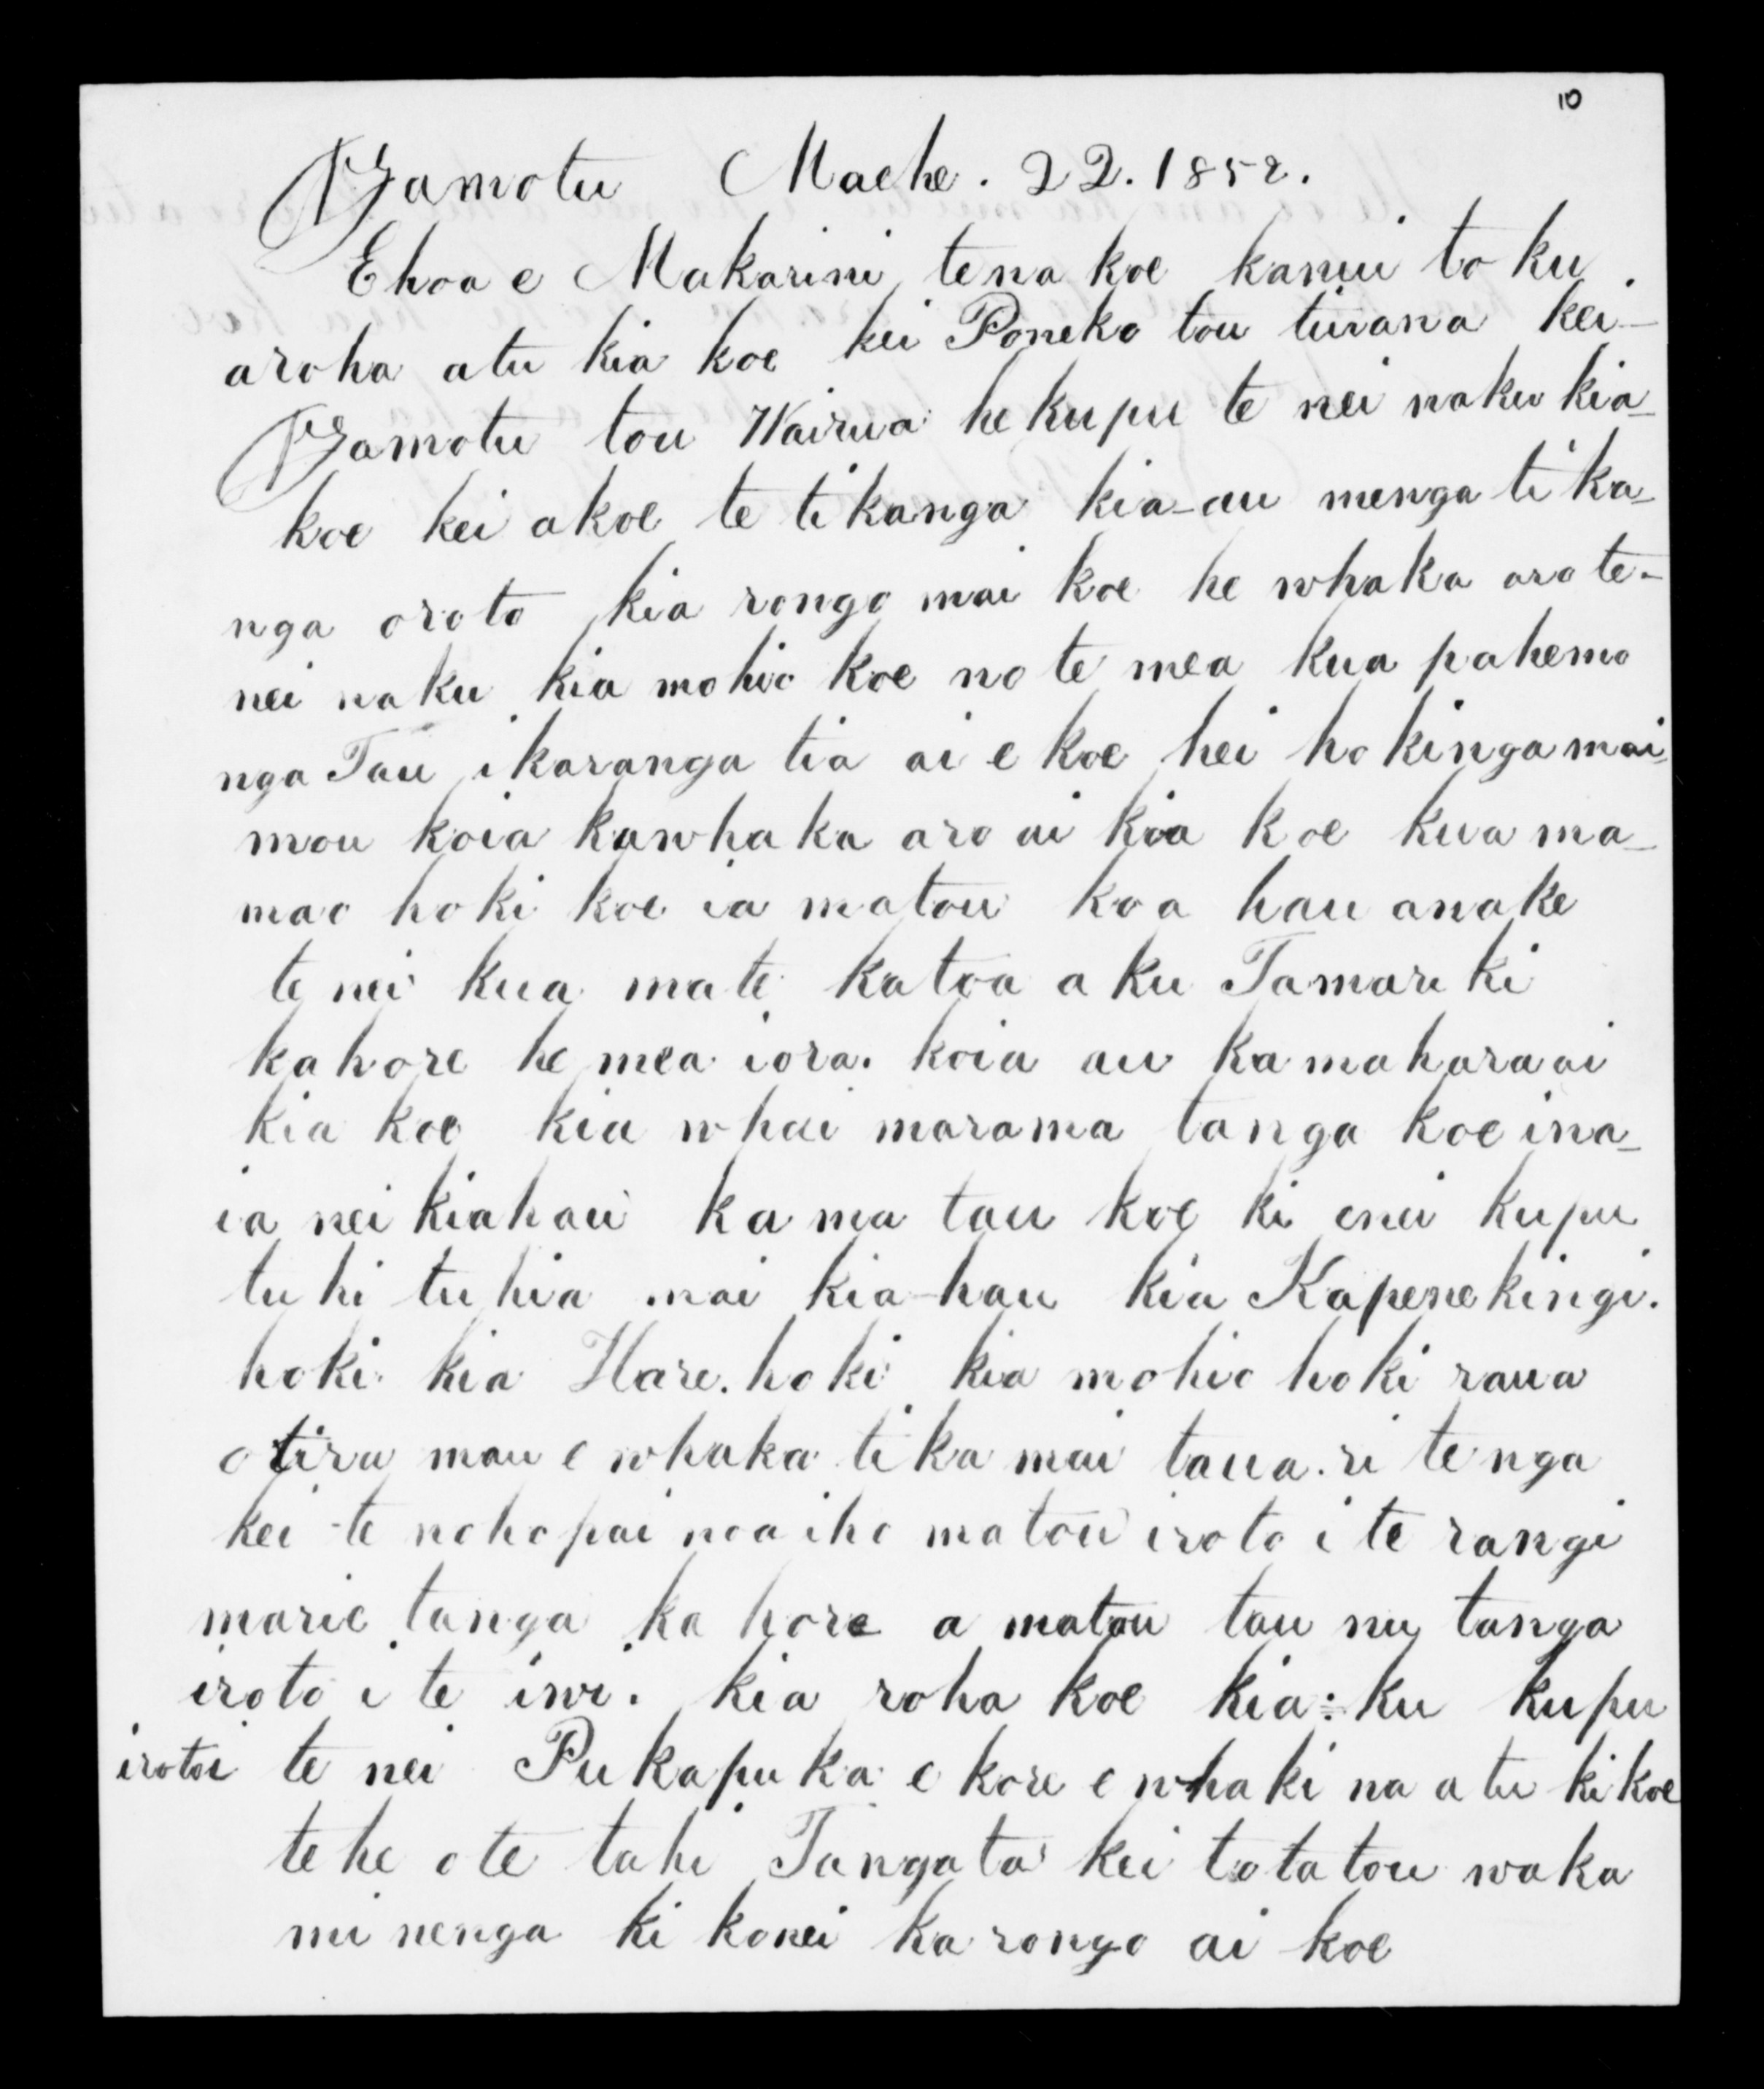 10
Ngamotu Maehe. 22. 1852.
Ehoa e Makarini tena koe kanui to ku
aroha atu kia koe kei Poneke tou tinana kei-
Ngamotu tou Wairua he kupu te nei naku kia-
koe kei akoe te tikanga kia-au menga tika-
nga oroto kia rongo mai koe he whaka aro te-
nei naku kia mohio koe no te mea kua pahemo
nga Tau i karanga tia ai e koe hei ho kinga mai
mou koia kawhaka aro ai kia koe kua ma-
mao hoki koe ia matou ko a hau anake
te nei kua mate katoa a ku Tamariki
kahore he mea iora. koia au ka maharaai
kia koe kia whai marama tanga koe ina-
ia nei kiahau ka ma tau koe ki enei kupu
tuhi tuhia mai kia-hau kia Kapene kingi.
hoki kia Hare. hoki kia mohio hoki raua
otira mau e whaka tika mai taua. ri tenga
kei te noho pai noa iho matou iroto i te rangi
marie tanga ka hore a matou tau nu tanga
iroto i te iwi. kia roha koe kia: ku kupu
irotoi te nei Pukapuka e kore e whaki na atu ki koe
te he o te tahi Tangata kei to tatou waka
mi nenga ki konei ka rongo ai koe